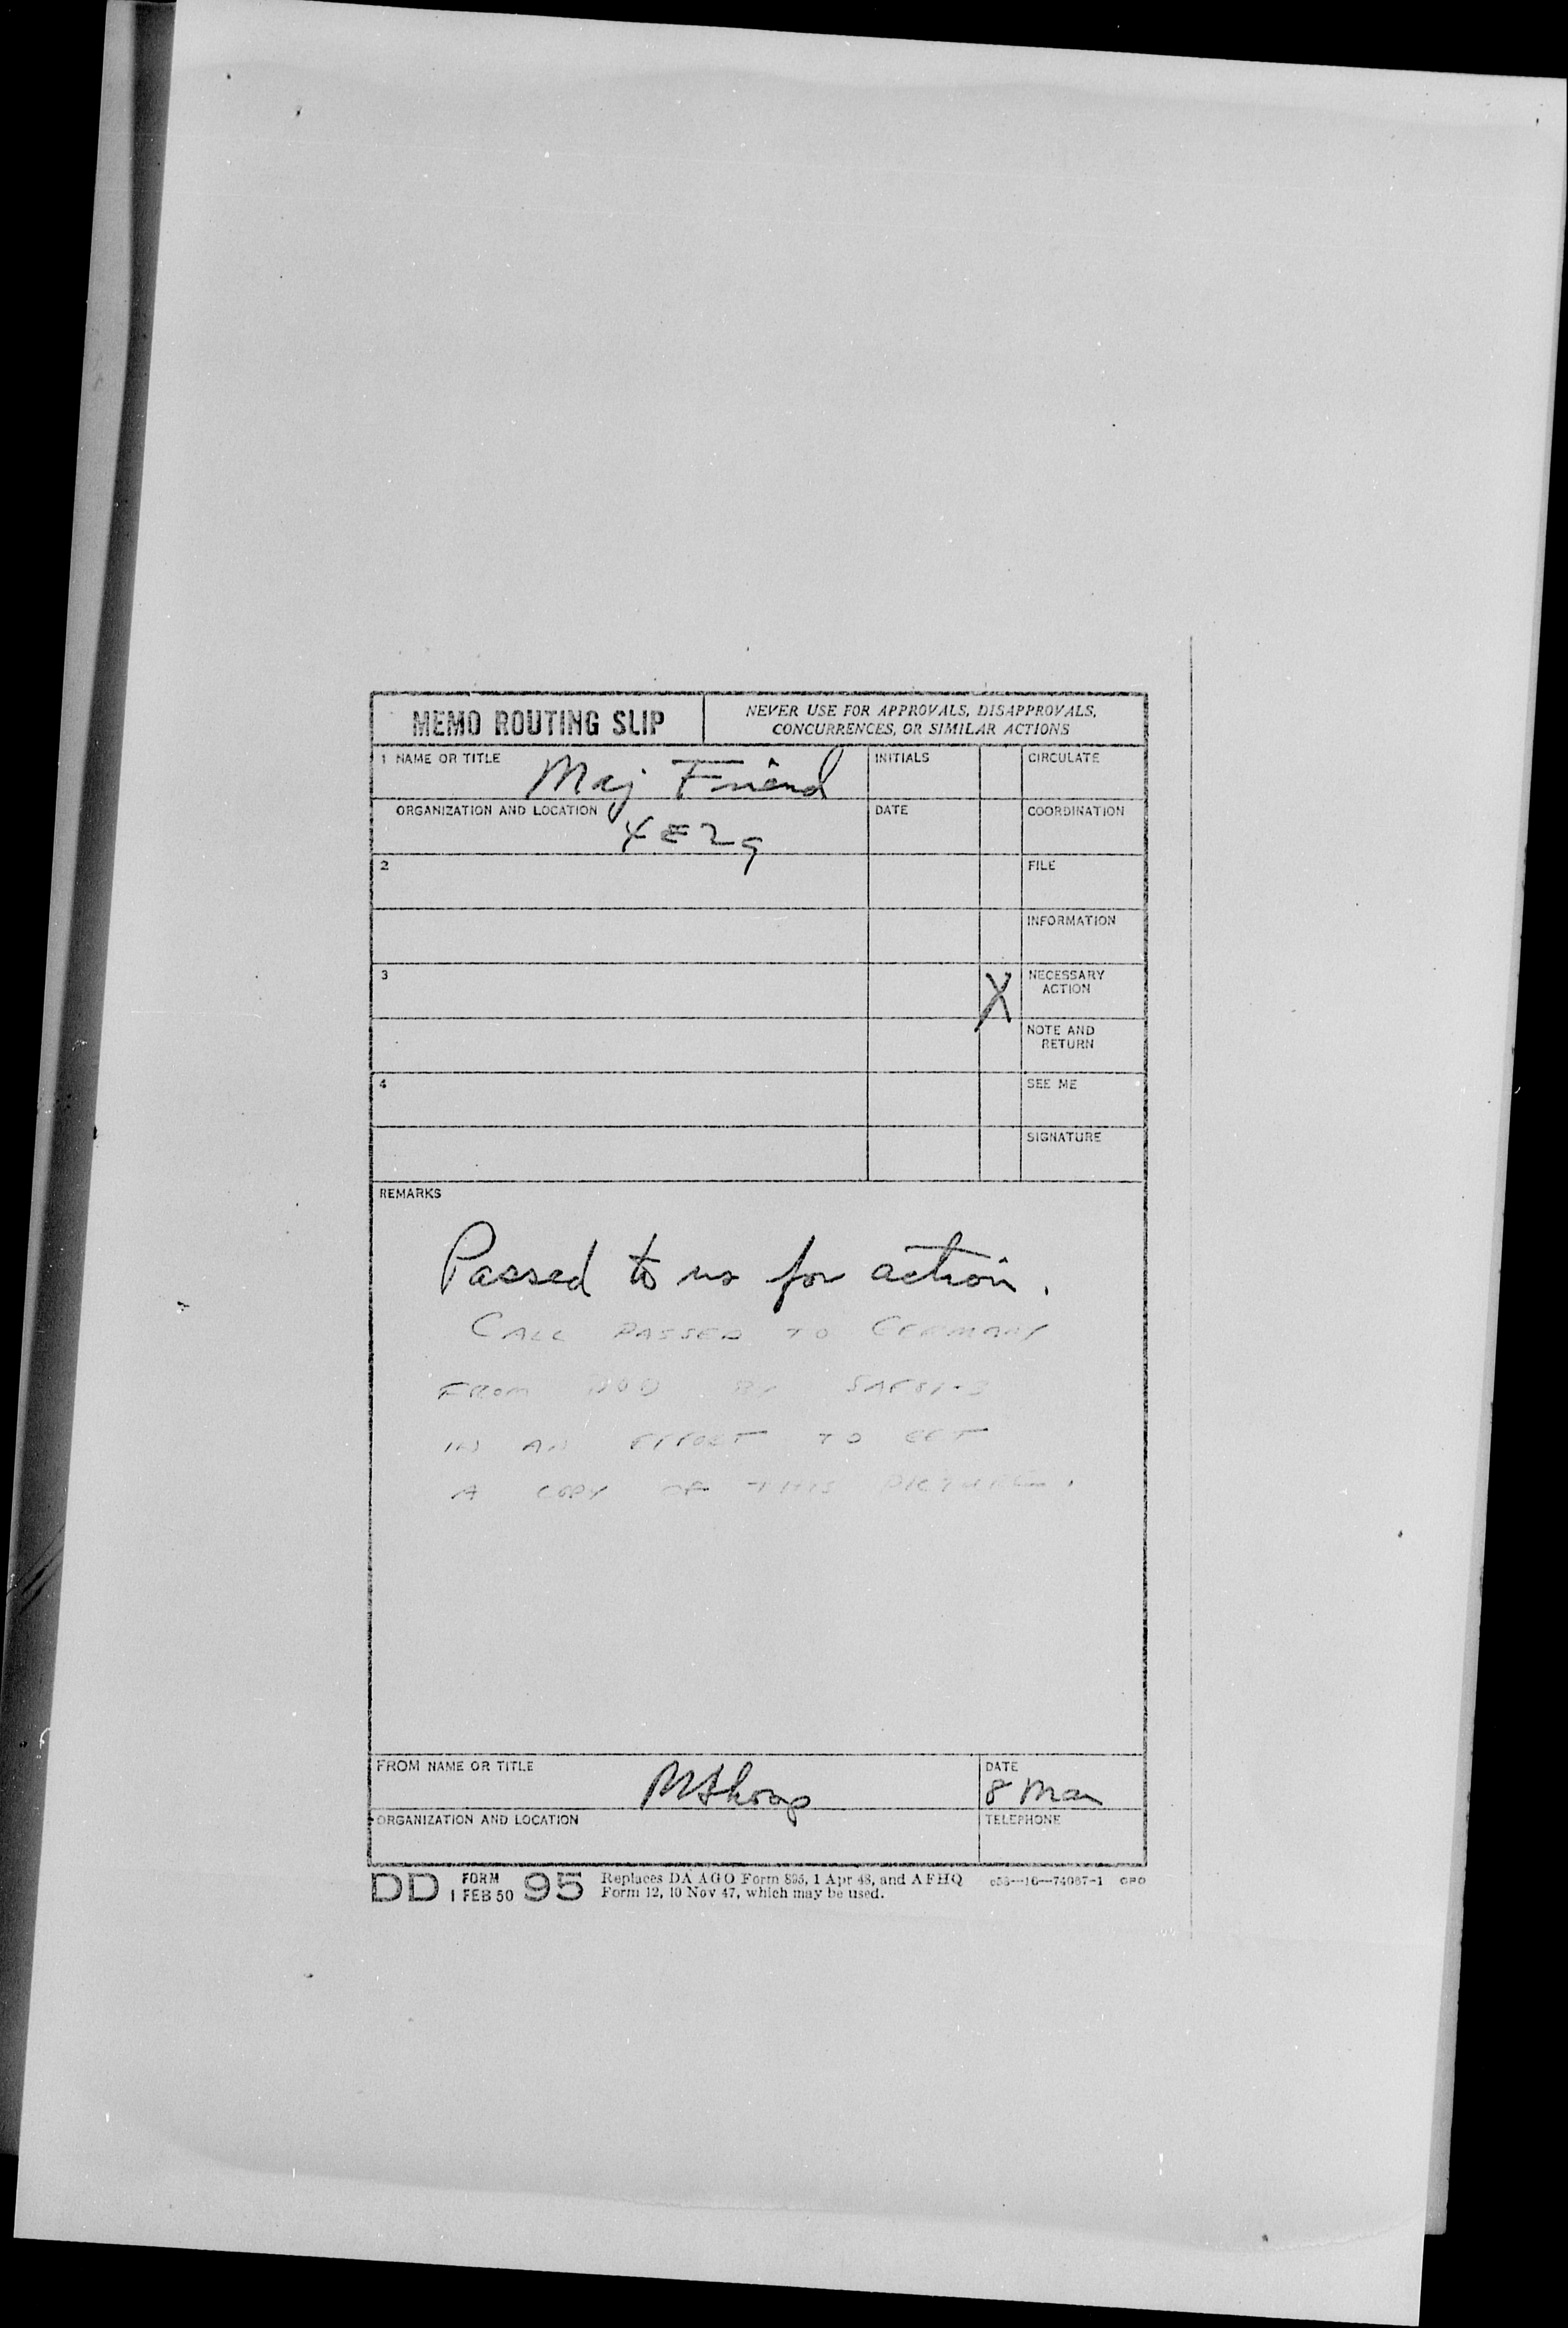 MEMO ROUTING SLIP
NEVER USE FOR APPROVALS, DISAPPROVALS,
CONCURRENCES, OR SIMILAR ACTIONS
1 NAME OR TITLE Maj Friend
INITIALS
CIRCULATE
ORGANIZATION AND LOCATION 4E29
DATE
COORDINATION
2
FILE
INFORMATION
3
X
NECESSARY
ACTION
NOTE AND
RETURN
4
SEE ME
SIGNATURE
REMARKS
Passed to us for action.
CALL PASSED TO GERMANY
FROM BY
IN AN EFFORT TO GET
A COPY OF THIS PICTURE.
FROM NAME OR TITLE
DATE
8 Mar
ORGANIZATION AND LOCATION
TELEPHONE
DD FORM 1 FEB 50 95
Replaces DA AGO Form 895, 1 Apr 48, and AFHQ
Form 12, 10 Nov 47, which may be used.
c53—16—74087-1 GPO